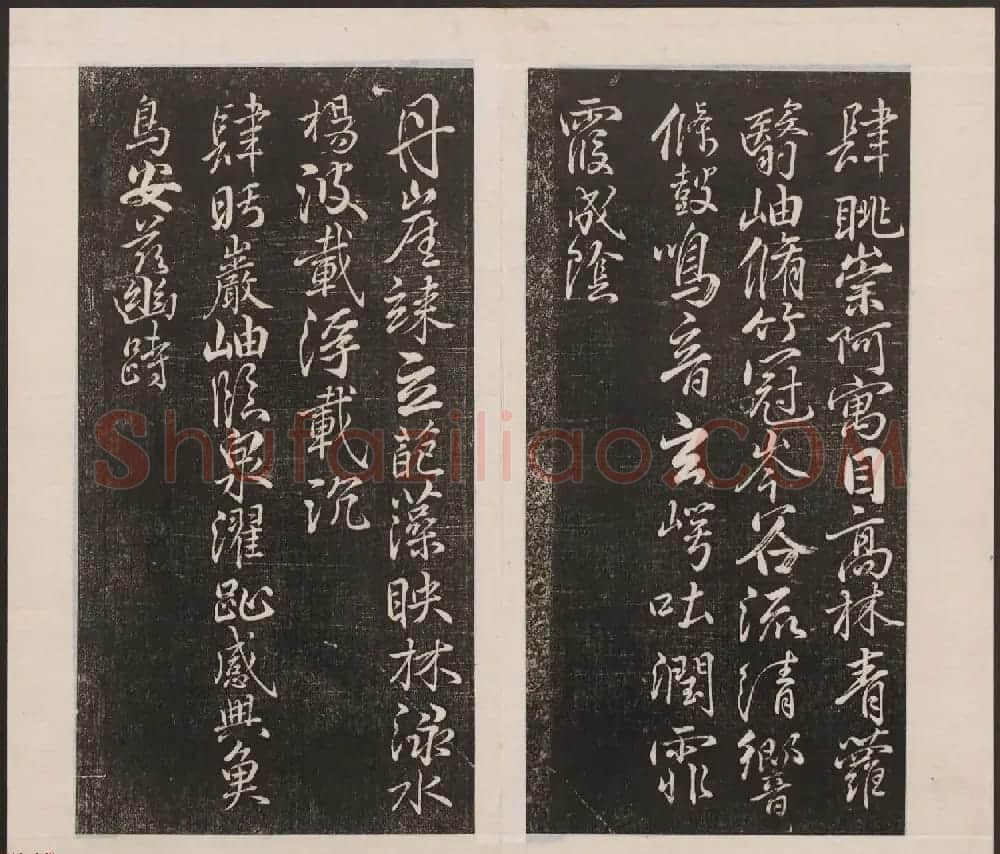 肆眺崇阿寓目高林青蘿
翳岫脩竹冠岑谷流清響
條鼓鳴音玄崿吐潤霏
霞成陰
丹崖竦立葩藻映林渌水
楊波載浮載沉
肆眄巖岫臨泉濯趾感興魚
鳥安茲幽跱
Shufaziliao.COM